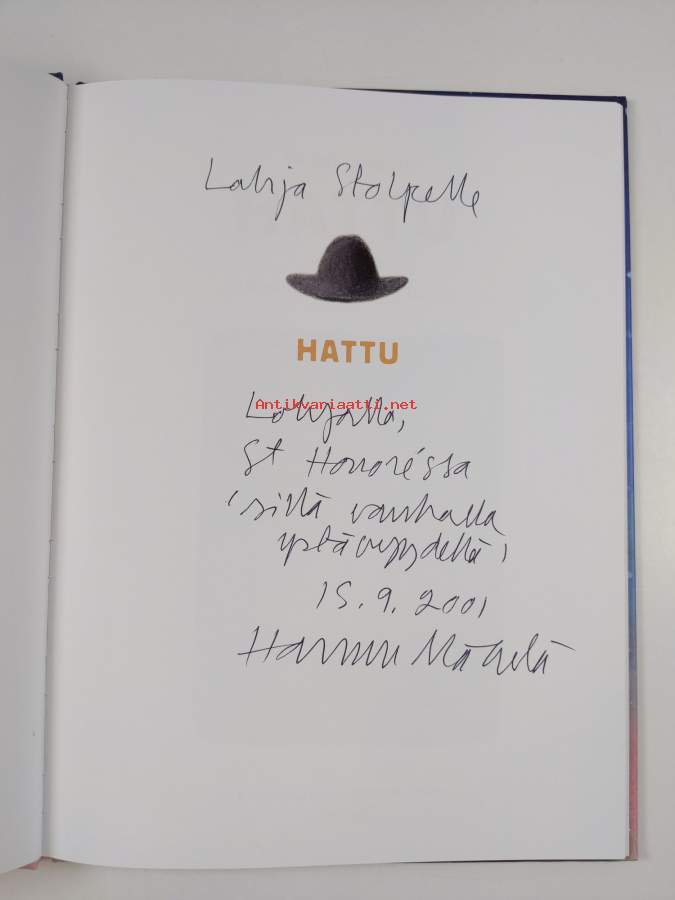 Lahja Stolpelle
HATTU
Antikvariaatti.net
Lohjalla,
St Honoréssa
'sillä vanhalla
ystävyydellä'
15.9.2001
Hannu Mäkelä